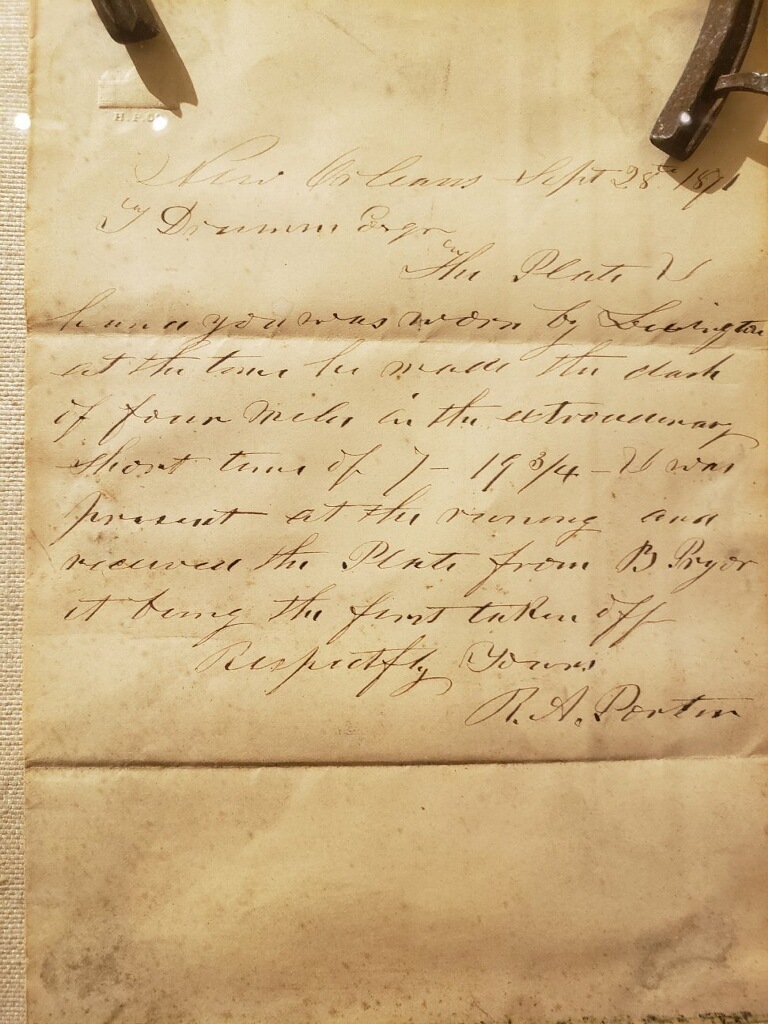 H.P.
New Orleans Sept 28th 1871
T Drumm Esqr
The Plate I
hand you was worn by Lexington
at the time he made the dash
of four Miles in the extraordinary
short time of 7 - 19 3/4 - I was
present at the running and
received the Plate from B Pryor
it being the first taken off
Respectfly Yours
R. A. Porter